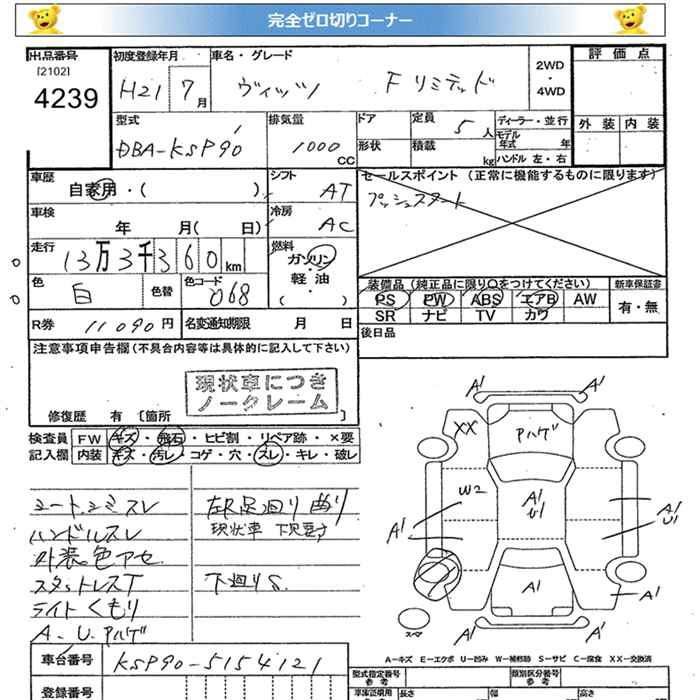 完全ゼロ切りコーナー
出品番号 初度登録年月 車名・グレード 2WD・4WD 評価点
[2102]
4239
H21 7月 ヴィッツ Fリミテッド
外装 内装
型式 排気量 ドア 定員 5人 ディーラー・並行
DBA-KSP90 1000CC 形状 積載 kg モデル年式 年
ハンドル 左・右
車歴 シフト セールスポイント (正常に機能するものに限ります)
自家用・( ) AT プッシュスタート
車検 冷房
年 月( 日) AC
走行 燃料
13万3千360km ガソリン・軽油( )
色 色替 色コード 装備品(純正品に限り○をつけてください) 新車保証書
白 068 PS PW ABS エアB AW 有・無
SR ナビ TV カワ
R券 11090円 名変通知期限 月 日 後日品
注意事項申告欄(不具合内容等は具体的に記入して下さい)
現状車につき
ノークレーム
修復歴 有 〔箇所 〕
検査員 FW キズ・飛石・ヒビ割・リペア跡・×要
記入欄 内装 キズ・汚レ・コゲ・穴・スレ・キレ・破レ
シート、ユミスレ 左足廻り曲り
ハンドルスレ 現状車 下見要す
外装色アセ
スタットレスT 下廻りS
ライトくもり
A、U、Pハゲ
A1 A1
XX Pハゲ
W2 A1 U1 A1 U1
A1
A1 A1
スペア A1 A1
A-キズ E-エクボ U-凹み W-補修跡 S-サビ C-腐食 XX-交換済
車台番号 KSP90-5154121
型式指定番号 参考 類別区分番号 参考
登録番号 車庫証明用 参考 長さ 幅 高さ